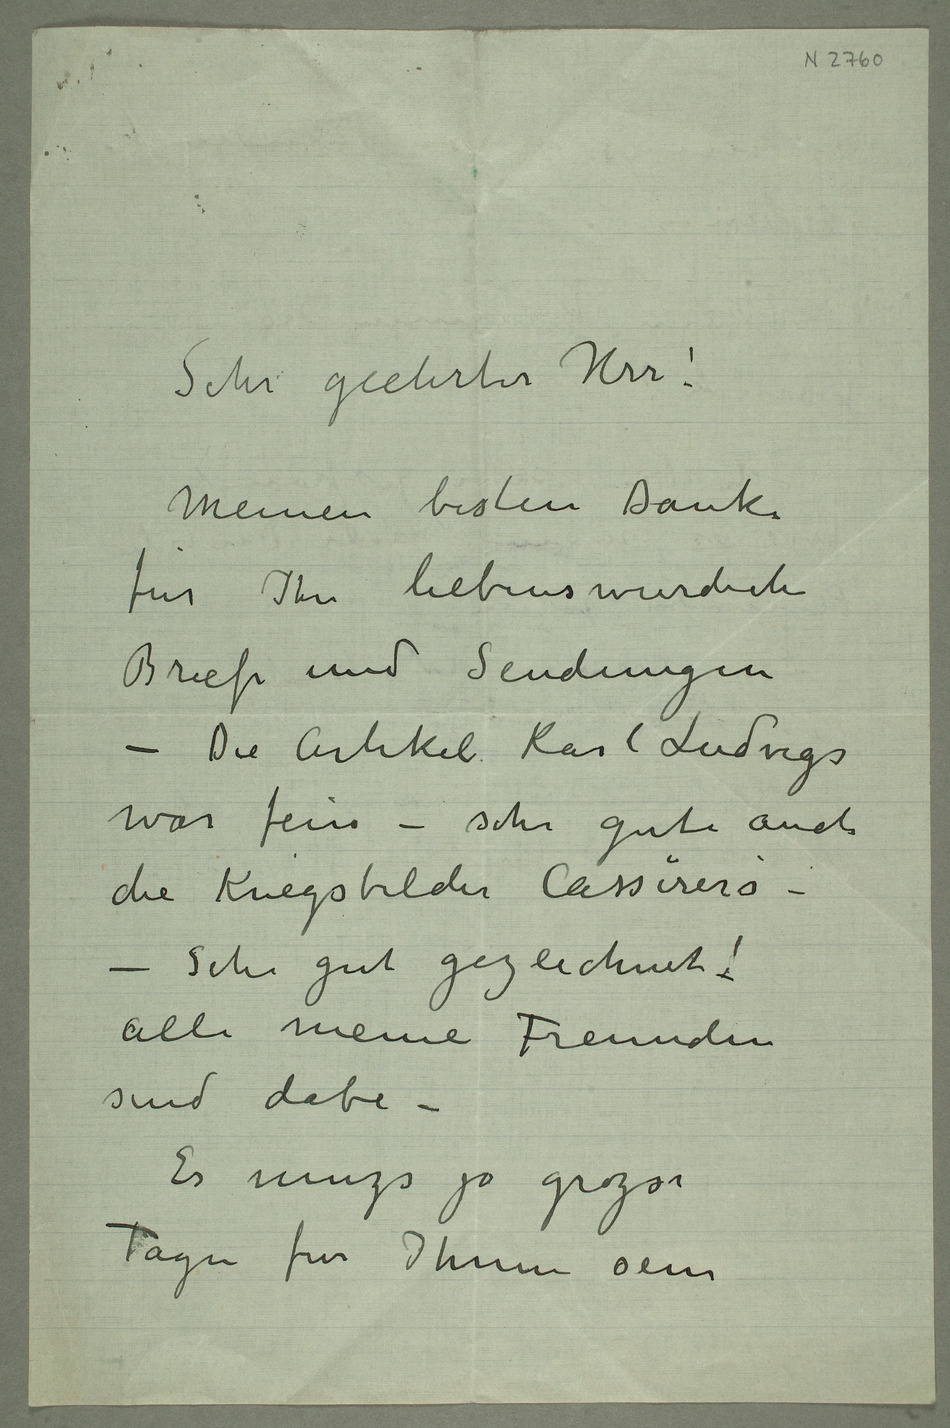 N 2760
Sehr geehrter Herr!
Meinen besten Danke
für Ihre liebenswürdiche
Briefe und Sendungen
– Die Artikel Karl Ludvigs
war fein – sehr gute auch
die Kriegsbilder Cassirers –
– Sehr gut gezeichnet!
alle meine Freunden
sind dabei –
Es muzs ja grozse
Tage fur Ihnen sein